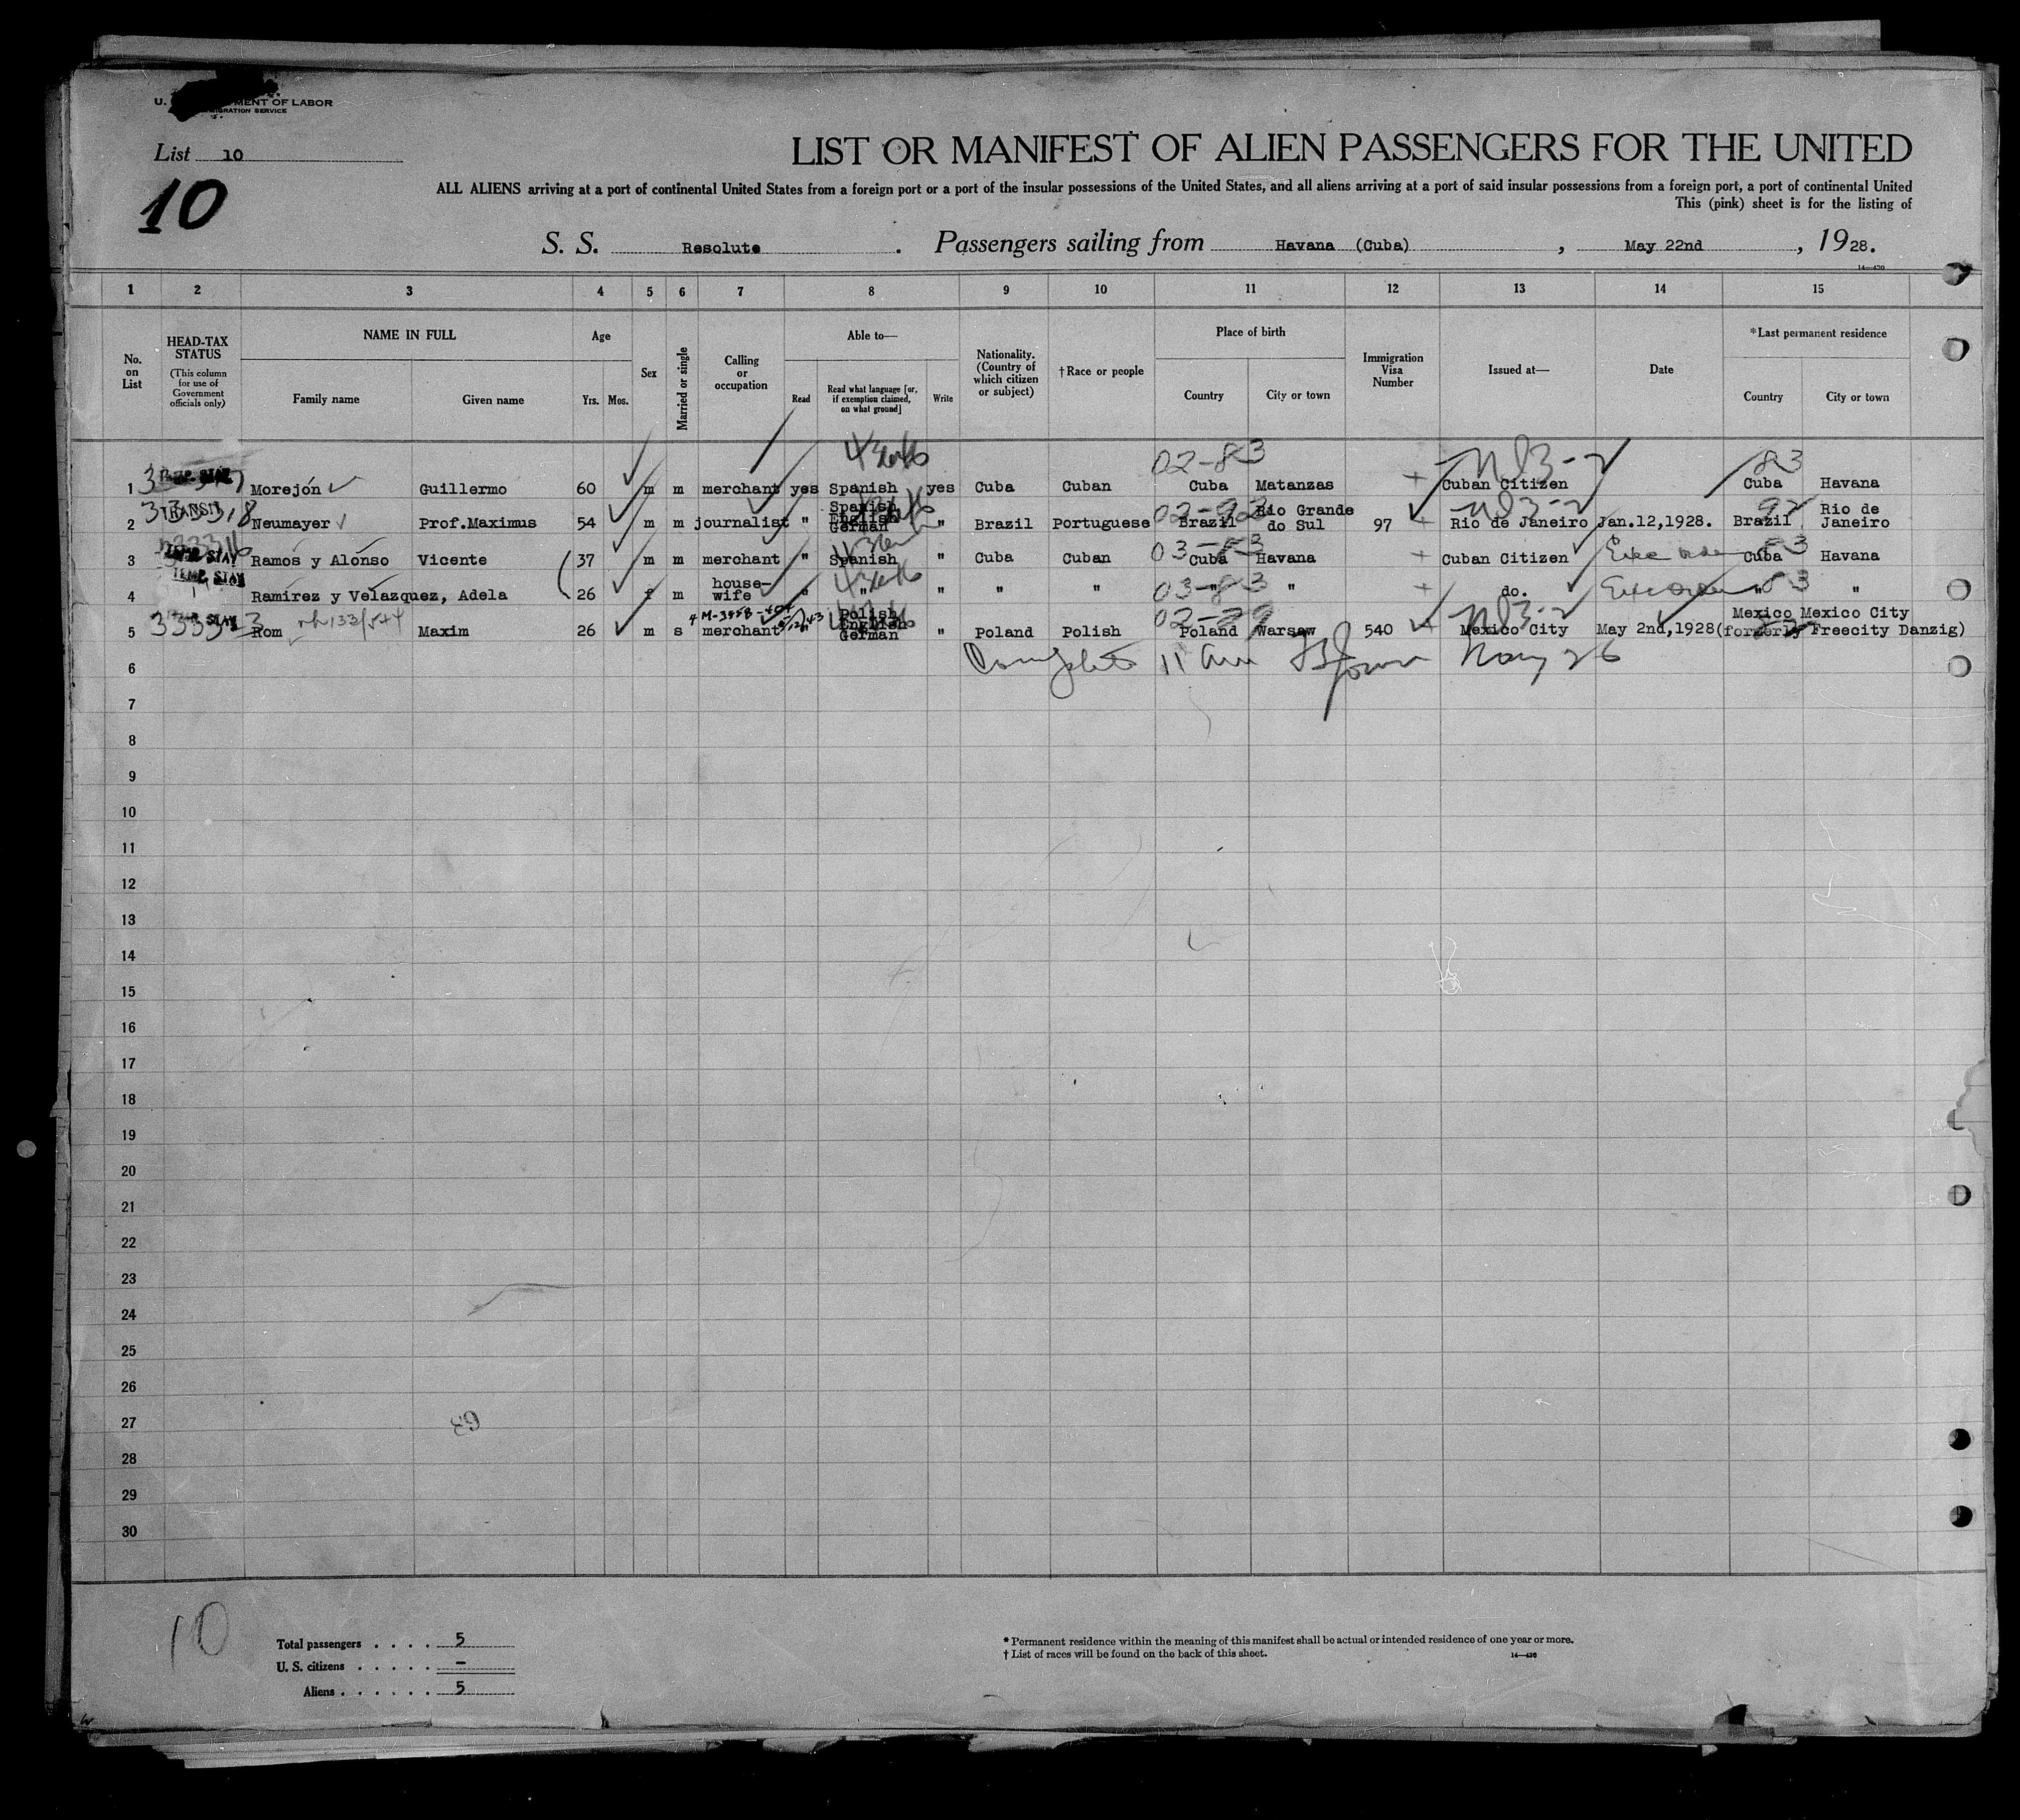 U. MENT OF LABOR
IGRATION SERVICE
List 10
10
LIST OR MANIFEST OF ALIEN PASSENGERS FOR THE UNITED
ALL ALIENS arriving at a port of continental United States from a foreign port or a port of the insular possessions of the United States, and all aliens arriving at a port of said insular possessions from a foreign port, a port of continental United
This (pink) sheet is for the listing of
S. S. Resolute. Passengers sailing from Havana (Cuba), May 22nd, 1928.
14—430
1 2 3 4 5 6 7 8 9 10 11 12 13 14 15
No. on List
HEAD-TAX STATUS (This column for use of Government officials only)
NAME IN FULL
Family name Given name
Age
Yrs. Mos.
Sex
Married or single
Calling or occupation
Able to—
Read Read what language [or, if exemption claimed, on what ground] Write
Nationality. (Country of which citizen or subject)
†Race or people
Place of birth
Country City or town
Immigration Visa Number
Issued at—
Date
*Last permanent residence
Country City or town
02-83 83
1 Morejón Guillermo 60 m m merchant yes Spanish yes Cuba Cuban Cuba Matanzas Cuban Citizen Cuba Havana
2 TRANSIT Neumayer Prof.Maximus 54 m m journalist " Spanish English German " Brazil Portuguese Brazil Rio Grande do Sul 97 Rio de Janeiro Jan.12,1928. Brazil Rio de Janeiro
3 TEMP. STAY Ramos y Alonso Vicente 37 m m merchant " Spanish " Cuba Cuban Cuba Havana Cuban Citizen Cuba Havana
4 TEMP. STAY Ramirez y Velazquez, Adela 26 f m house-wife " " " " " 03-83 " " do. " "
5 Rom Maxim 26 m s merchant Polish English German " Poland Polish Poland Warsaw 540 Mexico City May 2nd,1928 Mexico Mexico City (formerly Freecity Danzig)
6 11 am May 26
7
8
9
10
11
12
13
14
15
16
17
18
19
20
21
22
23
24
25
26
27
28
29
30
10
Total passengers . . . . 5
U. S. citizens . . . . . –
Aliens . . . . . . 5
* Permanent residence within the meaning of this manifest shall be actual or intended residence of one year or more.
† List of races will be found on the back of this sheet.
14—430